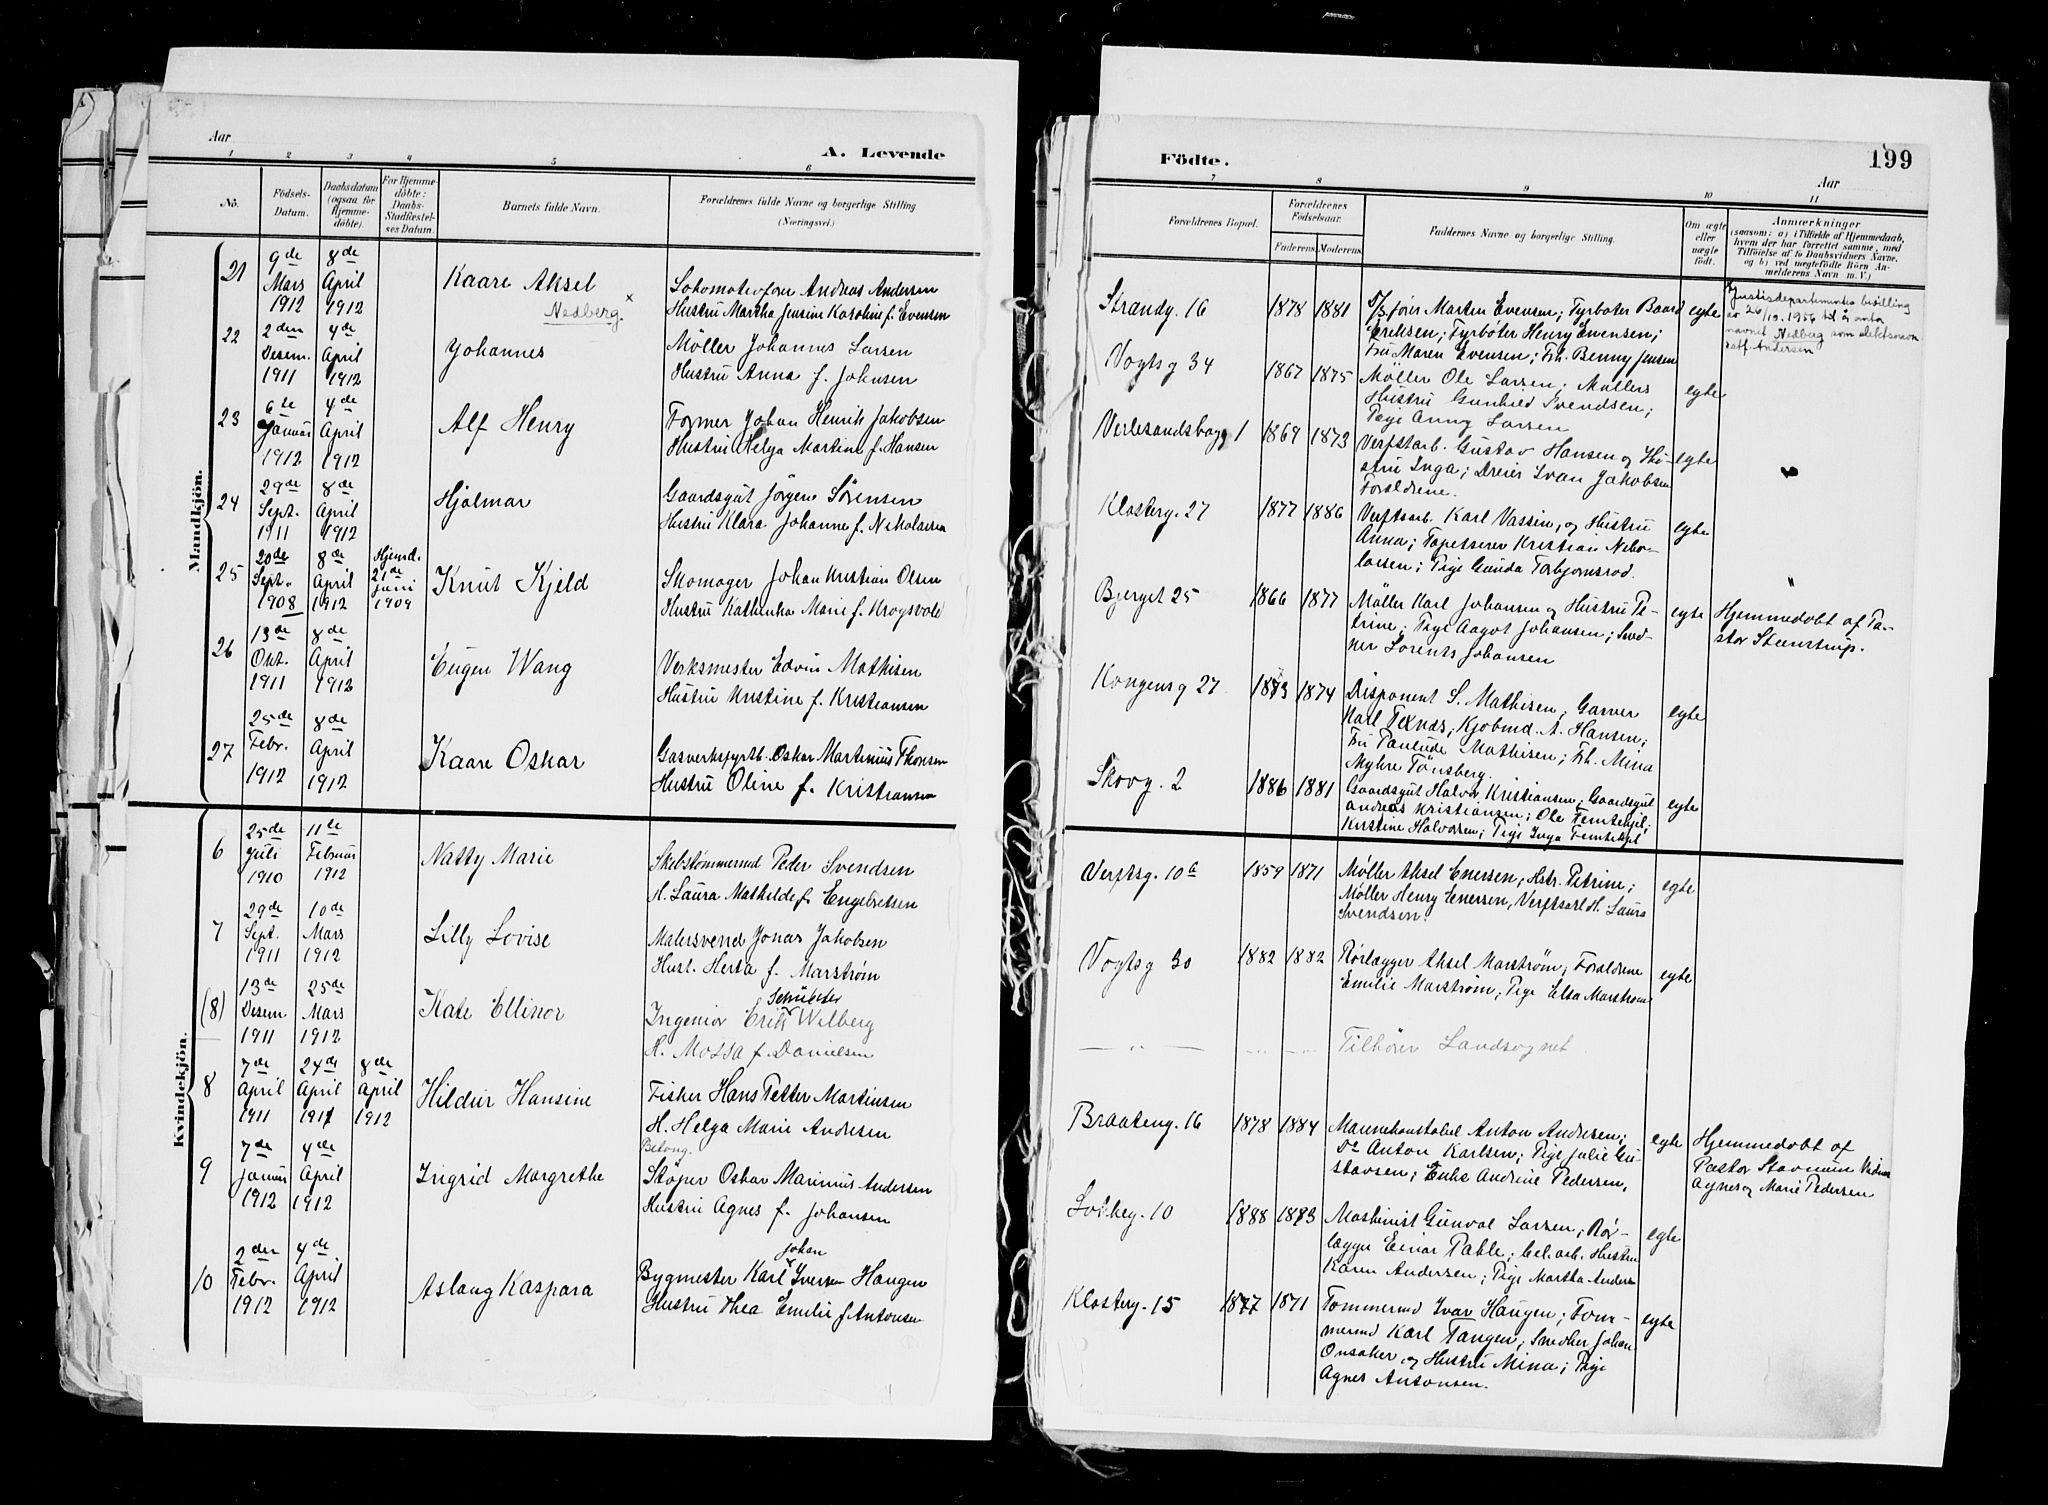 Aar
A. Levende
1 2 3 4 5 6
No.
Födsels-Datum.
Daabsdatum (ogsaa for Hjemme-döbte).
For Hjemme-döbte: Daabs-Stadfæstel-ses Datum.
Barnets fulde Navn.
Forældrenes fulde Navne og borgerlige Stilling.
(Næringsvei.)
Mandkjön.
21 9de Mars 1912 8de April 1912 Kaare Aksel
Nedberg x
Lokomotivfører Andreas Andersen
Hustru Martha Jensine Karoline f. Evensen
22 2den Desem. 1911 4de April 1912 Johannes
Møller Johannes Larsen
Hustru Anna f. Johnsen
23 6te Januar 1912 4de April 1912 Alf Henry
Former Johan Henrik Jakobsen
Hustru Helga Martine f. Hansen
24 29de Sept. 1911 8de April 1912 Hjalmar
Gaardsgut Jørgen Sørensen
Hustru Klara Johanne f. Nikolaisen
25 20de Sept. 1908 8de April 1912 Hjemd. 21de Juni 1909 Knut Kjeld
Skomager Johan Kristian Olsen
Hustru Kathinka Marie f. Krogsvold
26 13de Okt. 1911 8de April 1912 Eugen Wang
Verksmester Edvin Mathisen
Hustru Kristine f. Kristiansen
27 25de Febr. 1912 8de April 1912 Kaare Oskar
Gasverksfyrb. Oskar Martinius Thorsen
Hustru Oline f. Kristiansen
Kvindekjön.
6 25de Juli 1910 11te Februar 1912 Natty Marie
Skibstømmermd Peder Svendsen
H. Laura Mathilde f. Engebretsen
7 29de Sept. 1911 10de Mars 1912 Lilly Lovise
Malersvend Jonas Jakobsen
Hust. Herta f. Marstrøm
(8) 13de Desem 1911 25de Mars 1912 Kate Ellinor
Schübeler
Ingeniør Erik Wilberg
H. Mossa f. Danielsen
8 7de April 1911 24de April 1911 8de April 1912 Hildur Hansine
Fisker Hans Petter Martinsen
H. Helga Marie Andresen
9 7de Januar 1912 4de April 1912 Ingrid Margrethe
Betong.
Støper Oskar Marinius Andersen
Hustru Agnes f. Johansen
10 2den Febr. 1912 4de April 1912 Aslaug Kaspara
Johan
Bygmester Karl Iversen Haugen
Hustru Thea Emilie f. Antonsen
Födte.
199
Aar
7 8 9 10 11
Forældrenes Bopæl.
Forældrenes Födselsaar.
Faderens Moderens
Faddernes Navne og borgerlige Stilling.
Om ægte eller uægte födt.
Anmærkninger
(saasom: a) i Tilfælde af Hjemmedaab,
hvem der har forrettet samme, med
Tilföielse af to Daabsvidners Navne,
og b) ved uægtefödte Börn An-
melderens Navn m. V.)
Strandg. 16 1878 1881
fører Martin Evensen; Fyrbøter Baard
Erilesen; Fyrbøter Henry Evensen;
Fru Maren Evensen; Frk. Benny Jensen
egte
x Justisdepartementes bevilling
av 26/10. 1956 til å anta
navnet Nedberg som slektsnavn
istf. Andersen
Vogtsg 34 1867 1875
Møller Ole Larsen; Møllers
Hustru Gunhild Svendsen;
Pige Anny Larsen
egte
Verlesandsbagg 1 1869 1873
Verftsarb. Gustav Hansen og Hu-
stru Inga; Dreier Ivan Jakobsen
Forældrene.
egte
Klosterg. 27 1877 1886
Verftsarb. Karl Vassim, og Hustru
Anna; Tapetserer Kristian Niko-
laisen; Pige Gunda Torbjørnsrød.
egte
Bjerget 25 1866 1877
Møller Karl Johansen og Hustru Pe-
trine; Pige Aagot Johansen; Sned-
ker Lorents Johansen
egte
Hjemmedøbt af Pa-
stor Steenstrup.
Kongensg 27 1873 1874
Disponent S. Mathisen; Garver
Karl Texnæs; Kjøbmd. A. Hansen;
Fru Paulude Mathisen; Frk. Mina
Myhre Tønsberg.
egte
Skovg. 2 1886 1881
Gaardsgut Halvor Kristiansen; Gaardsgut
Andreas Kristiansen; Ole Femtekjel;
Kristine Halvorsen; Pige Inga Femtekjel
egte
Verftsg. 10b 1859 1871
Møller Aksel Enersen; Hstr. Petrine;
Møller Henry Enersen, Verftsarb H. Laura
Svendsen.
egte
Vogtsg 30 1882 1882
Rørlægger Aksel Marstrøm; Forældrene
Emilie Marstrøm; Pige Elsa Marstrøm
egte
— " — " "
Tilhører Landsognet
Braateng. 16 1878 1884
Marinekonstabel Anton Andresen;
Do Anton Karlsen; Pige Julie Gu-
stavsen; Enke Andrine Pedersen,
egte
Hjemmedøbt af
Pastor Stavnum Vidner
Agnes og Marie Pedersen
Lørkeg. 10 1888 1883
Maskinist Gunval Larsen; Rør-
lægger Einar Pahle; Cel.arb. Hustru
Karen Andersen; Pige Martha Anders
egte
Klosterg. 15 1877 1871
Tømmermd Ivar Haugen; Tøm-
mermd Karl Tangen; Snedker Johan
Onsaker og Hustru Mina; Pige
Agnes Antonsen.
egte